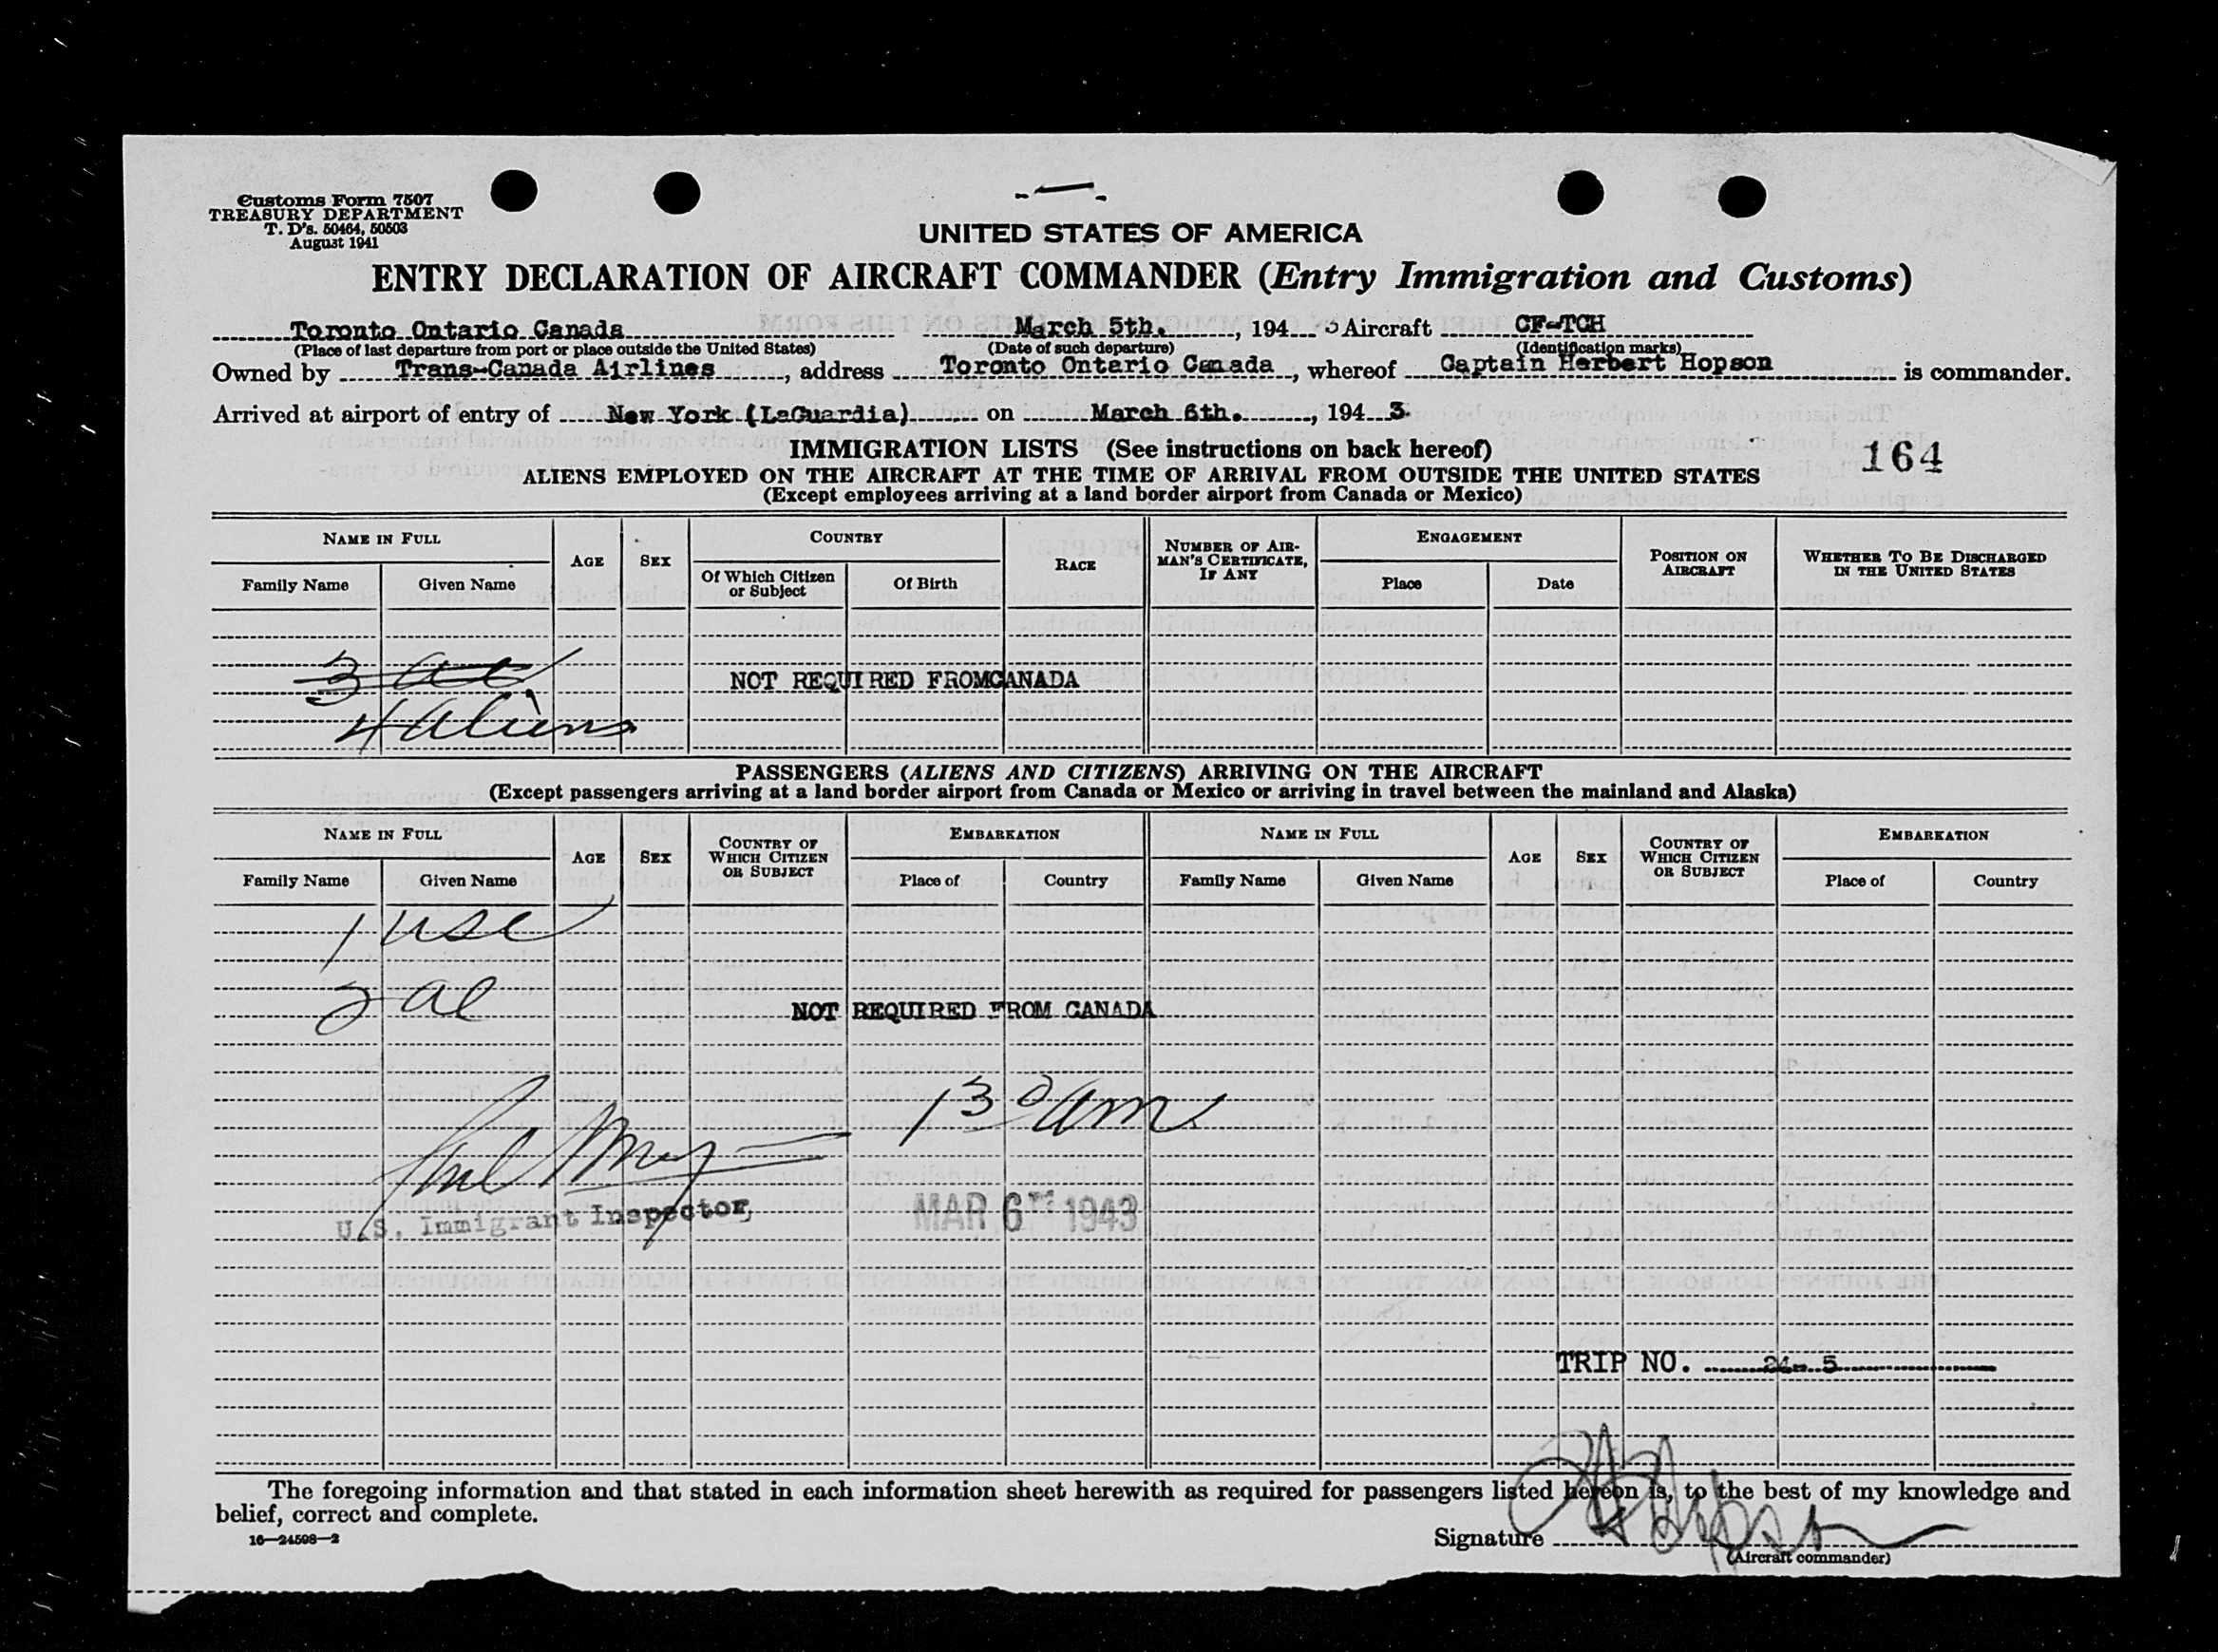 Customs Form 7507
TREASURY DEPARTMENT
T. D's. 50464, 50503
August 1941
UNITED STATES OF AMERICA
ENTRY DECLARATION OF AIRCRAFT COMMANDER (Entry Immigration and Customs)
Toronto Ontario Canada March 5th. , 194 3 Aircraft CF-TCH
(Place of last departure from port or place outside the United States) (Date of such departure) (Identification marks)
Owned by Trans-Canada Airlines , address Toronto Ontario Canada , whereof Captain Herbert Hopson is commander.
Arrived at airport of entry of New York (LaGuardia) on March 6th. , 194 3.
IMMIGRATION LISTS (See instructions on back hereof)
164
ALIENS EMPLOYED ON THE AIRCRAFT AT THE TIME OF ARRIVAL FROM OUTSIDE THE UNITED STATES
(Except employees arriving at a land border airport from Canada or Mexico)
NAME IN FULL AGE SEX COUNTRY RACE NUMBER OF AIRMAN'S CERTIFICATE, IF ANY ENGAGEMENT POSITION ON AIRCRAFT WHETHER TO BE DISCHARGED IN THE UNITED STATES
Family Name Given Name Of Which Citizen or Subject Of Birth Place Date
3 ae
NOT REQUIRED FROMCANADA
4 Aliens
PASSENGERS (ALIENS AND CITIZENS) ARRIVING ON THE AIRCRAFT
(Except passengers arriving at a land border airport from Canada or Mexico or arriving in travel between the mainland and Alaska)
NAME IN FULL AGE SEX COUNTRY OF WHICH CITIZEN OR SUBJECT EMBARKATION NAME IN FULL AGE SEX COUNTRY OF WHICH CITIZEN OR SUBJECT EMBARKATION
Family Name Given Name Place of Country Family Name Given Name Place of Country
1 usc
2 ae
NOT REQUIRED FROM CANADA
1 30 am
U.S. Immigrant Inspector
MAR 6TH 1943
TRIP NO. 24- 5
The foregoing information and that stated in each information sheet herewith as required for passengers listed hereon is, to the best of my knowledge and
belief, correct and complete.
16—24598-2
Signature H Hopson
(Aircraft commander)